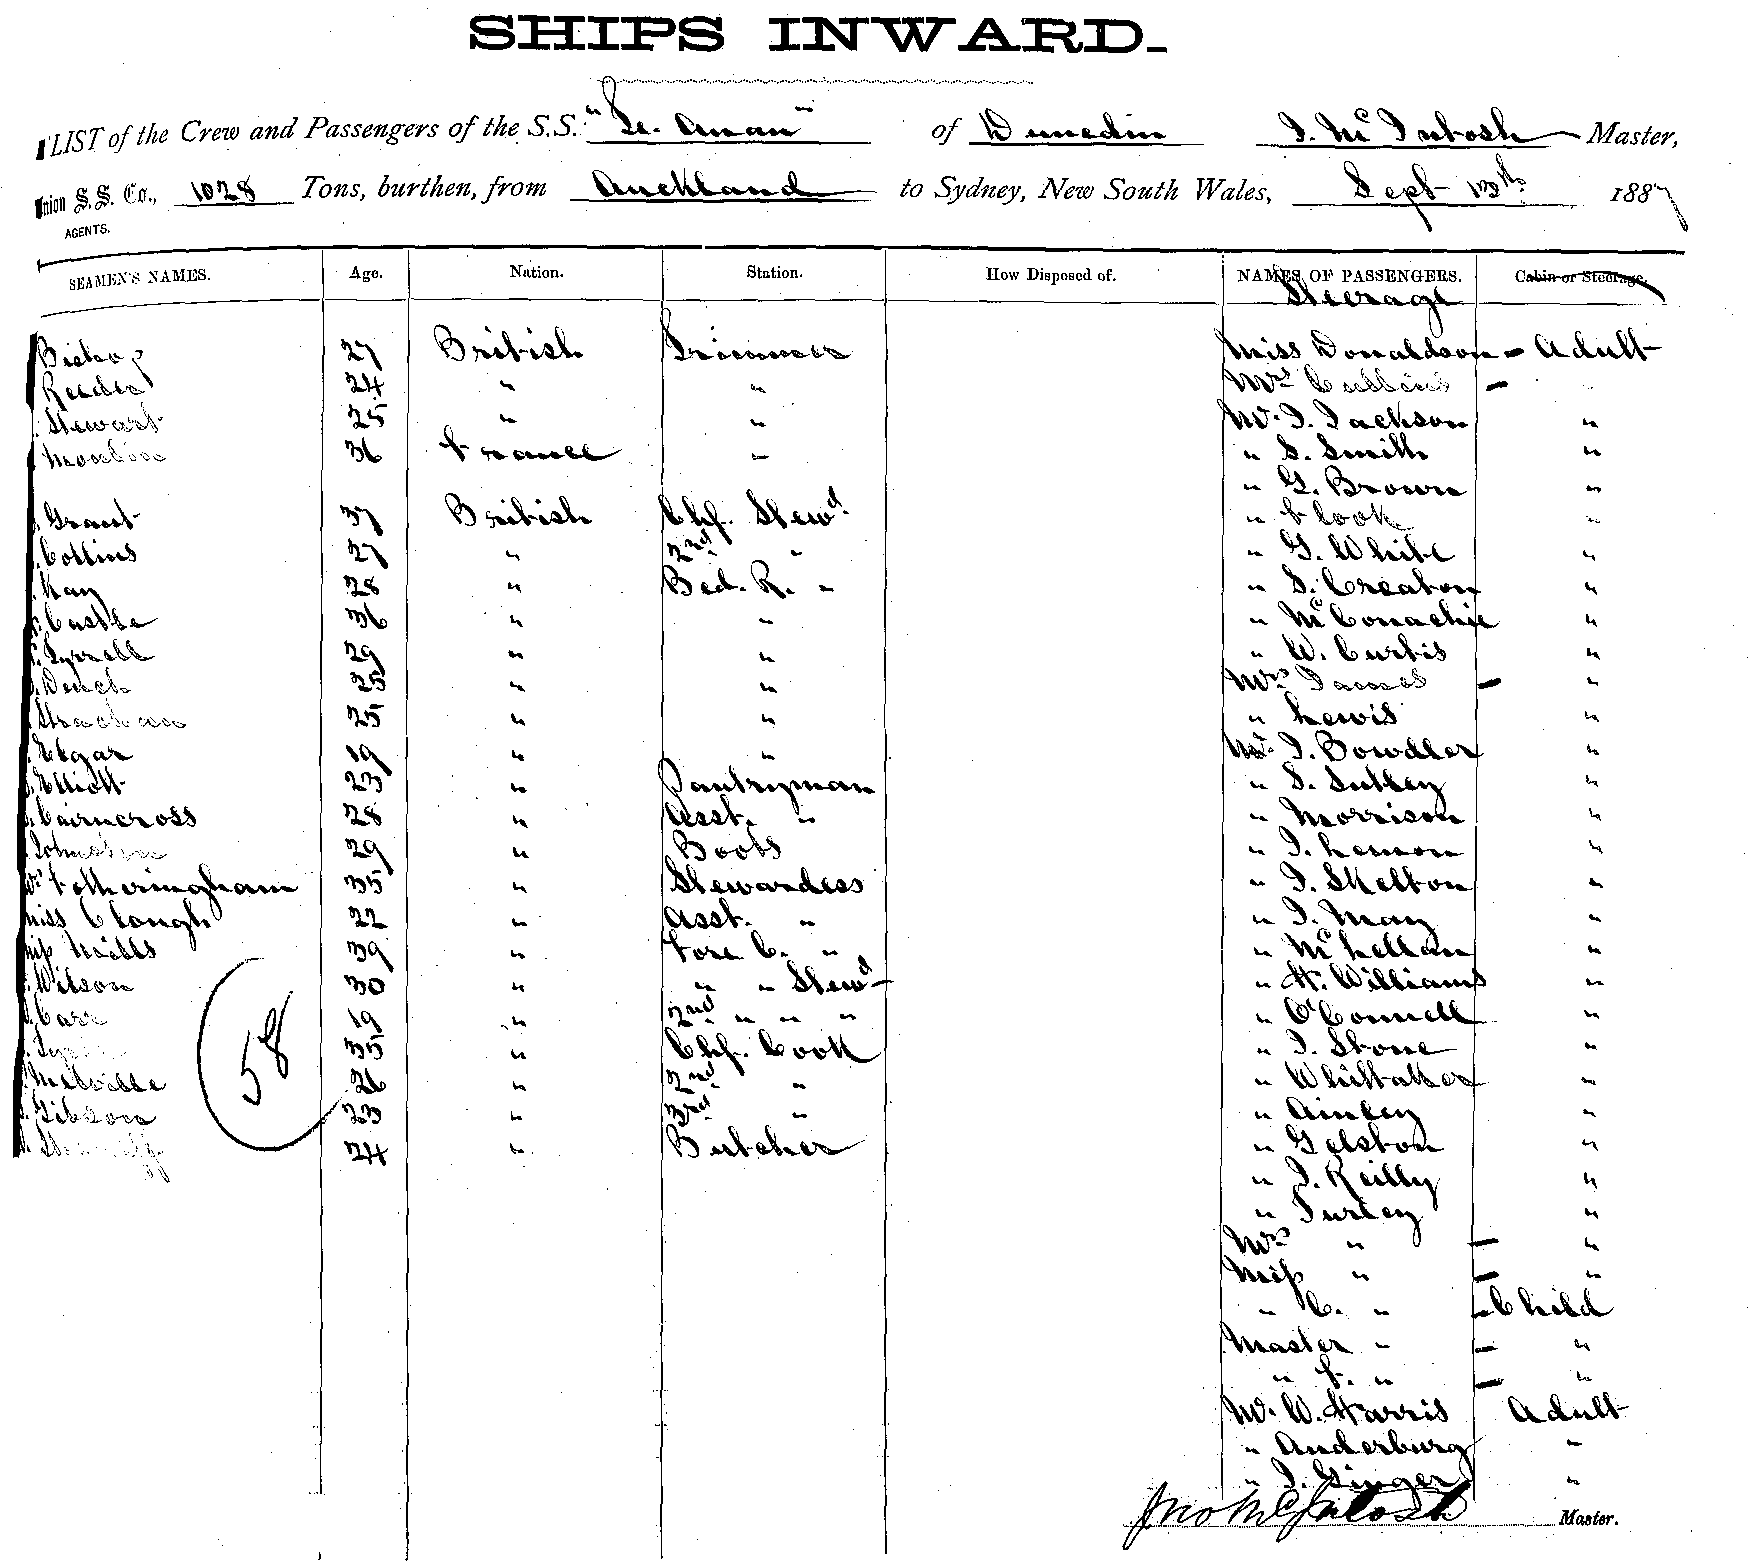 SHIPS INWARD.
LIST of the Crew and Passengers of the S.S. "Te Anau" of Dunedin J. McIntosh Master,
Union S.S. Co., 1028 Tons, burthen, from Auckland to Sydney, New South Wales, Sept 13th 1887
AGENTS.
SEAMEN'S NAMES. Age. Nation. Station. How Disposed of. NAMES OF PASSENGERS. Cabin or Steerage.
Steerage
Bishop 27 British Trimmer Miss Donaldson - Adult
Reeder 24 " " Mrs Cullins - "
Stewart 25 " " Mr. J. Jackson "
36 France " " S. Smith "
" G. Brown "
Grant 37 British Chf. Stewd " F Cook "
Collins 27 " 2nd " " G. White "
Kay 28 " Bed. R. " " S. Creaton "
Castle 36 " " " McConachie "
Tyrrell 29 " " " W. Curtis "
Dench 25 " " Mrs James - "
Strachan 25 " " " Lewis "
Elgar 19 " " Mr. J. Bowdler "
Elliott 23 " Pantryman " S. Sutley "
Cairncross 28 " Asst. " " Morrison "
Johnston 29 " Boots " J. Lemon "
Mrs Fotheringham 35 " Stewardess " J. Skelton "
Miss Clough 22 " Asst. " " J. May "
Miss Nibbs 39 " Fore C. " " McLellan "
Wilson 30 " " " Stewd " H. Williams "
Carr 19 " 2nd " " " " O'Connell "
35 " Chf. Cook " J. Stone "
Melville 26 " 2nd " " Whittaker "
Gibson 23 " 3rd " " Ainley "
24 " Butcher " Gelston "
58
" J. Reilly "
" Turley "
Mrs " - "
Miss " - "
" C. " - Child
Master " - "
" F. " - "
Mr. W. Harris Adult
" Anderburg "
" J. Ginger "
Jno McIntosh Master.